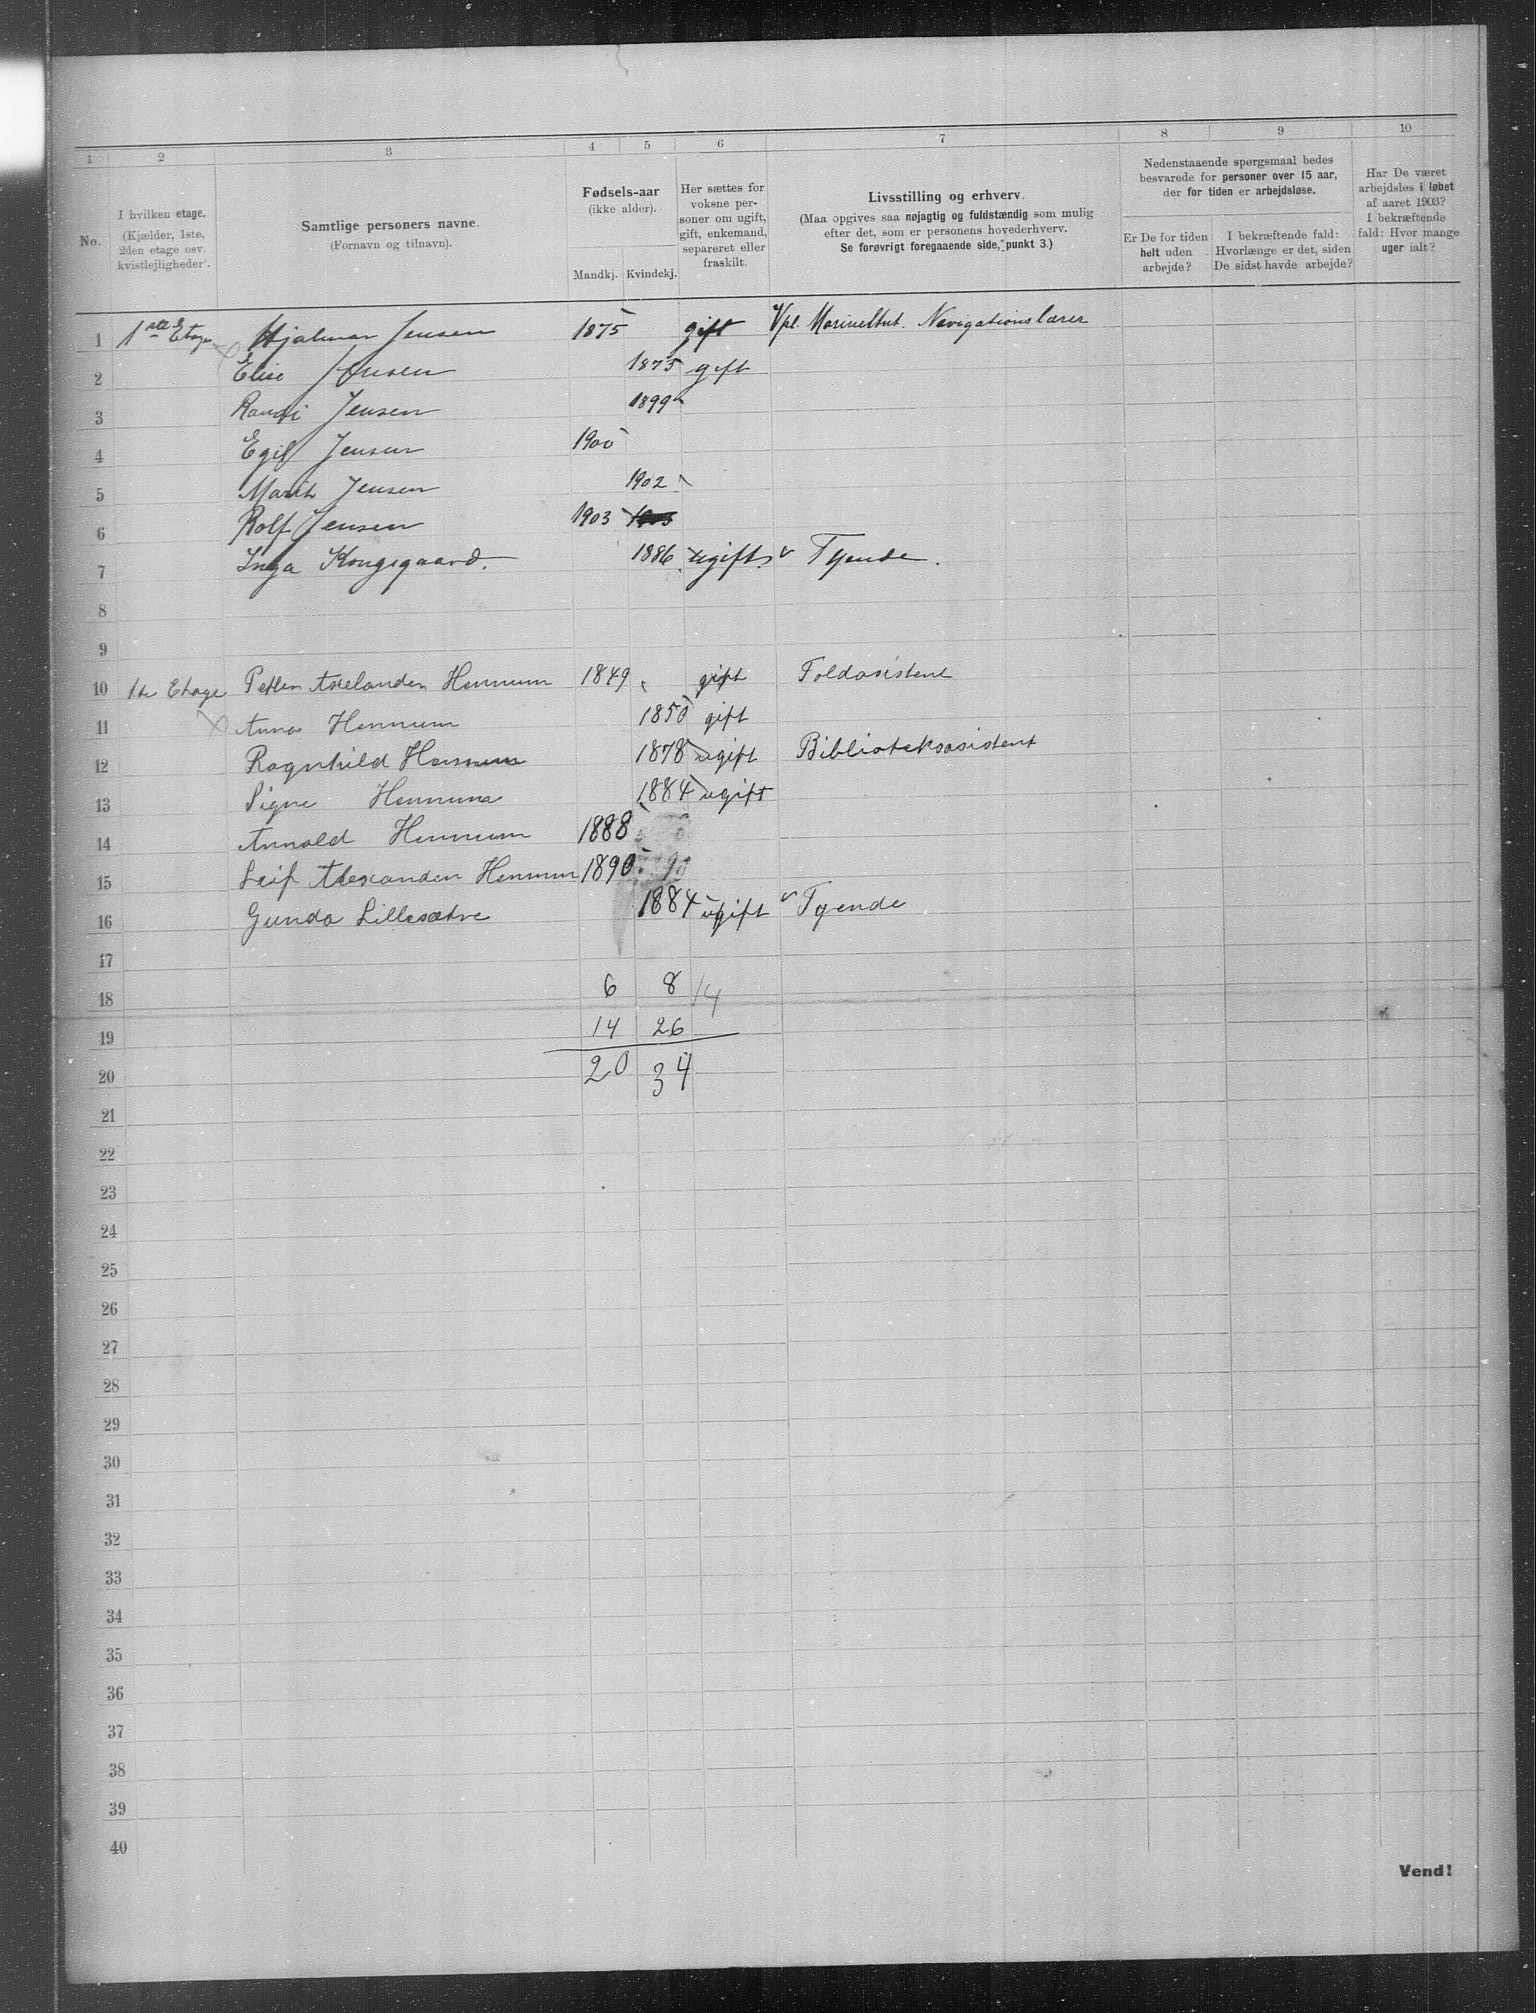 1 2 3 4 5 6 7 8 9 10
No.
I hvilken etage.
(Kjælder, 1ste,
2den etage osv.
kvistlejligheder).
Samtlige personers navne.
(Fornavn og tilnavn).
Fødsels-aar
(ikke alder).
Mandkj. Kvindekj.
Her sættes for
voksne per-
soner om ugift,
gift, enkemand,
separeret eller
fraskilt.
Livsstilling og erhverv.
(Maa opgives saa nøjagtig og fuldstændig som mulig
efter det, som er personens hovederhverv.
Se forøvrigt foregaaende side, punkt 3.)
Nedenstaaende spørgsmaal bedes
besvarede for personer over 15 aar,
der for tiden er arbejdsløse.
Er De for tiden
helt uden
arbejde?
I bekræftende fald:
Hvorlænge er det, siden
De sidst havde arbejde?
Har De været
arbejdsløs i løbet
af aaret 1903?
I bekræftende
fald: Hvor mange
uger ialt?
1 1ste Etage Hjalmar Jensen 1875 gift Vpl. Navigationslærer
2 Elise Jensen 1875 gift
3 Randi Jensen 1899
4 Egil Jensen 1900
5 Marit Jensen 1902
6 Rolf Jensen 1903 1903
7 Inga Kongsgaard. 1886 ugift v Tjende.
8
9
10 1te Etage Petter Hennum 1849 gift Toldasistent
11 Anna Hennum 1850 gift
12 Ragnhild Hennum 1878 ugift Biblioteksasistent
13 Signe Hennum 1884 ugift
14 Arnold Hennum 1888
15 Leif Alexander Hennum 1890
16 Gunda Lillesætre 1884 ugift v Tjende
17
18 6 8 14
19 14 26
20 20 34
21
22
23
24
25
26
27
28
29
30
31
32
33
34
35
36
37
38
39
40
Vend!